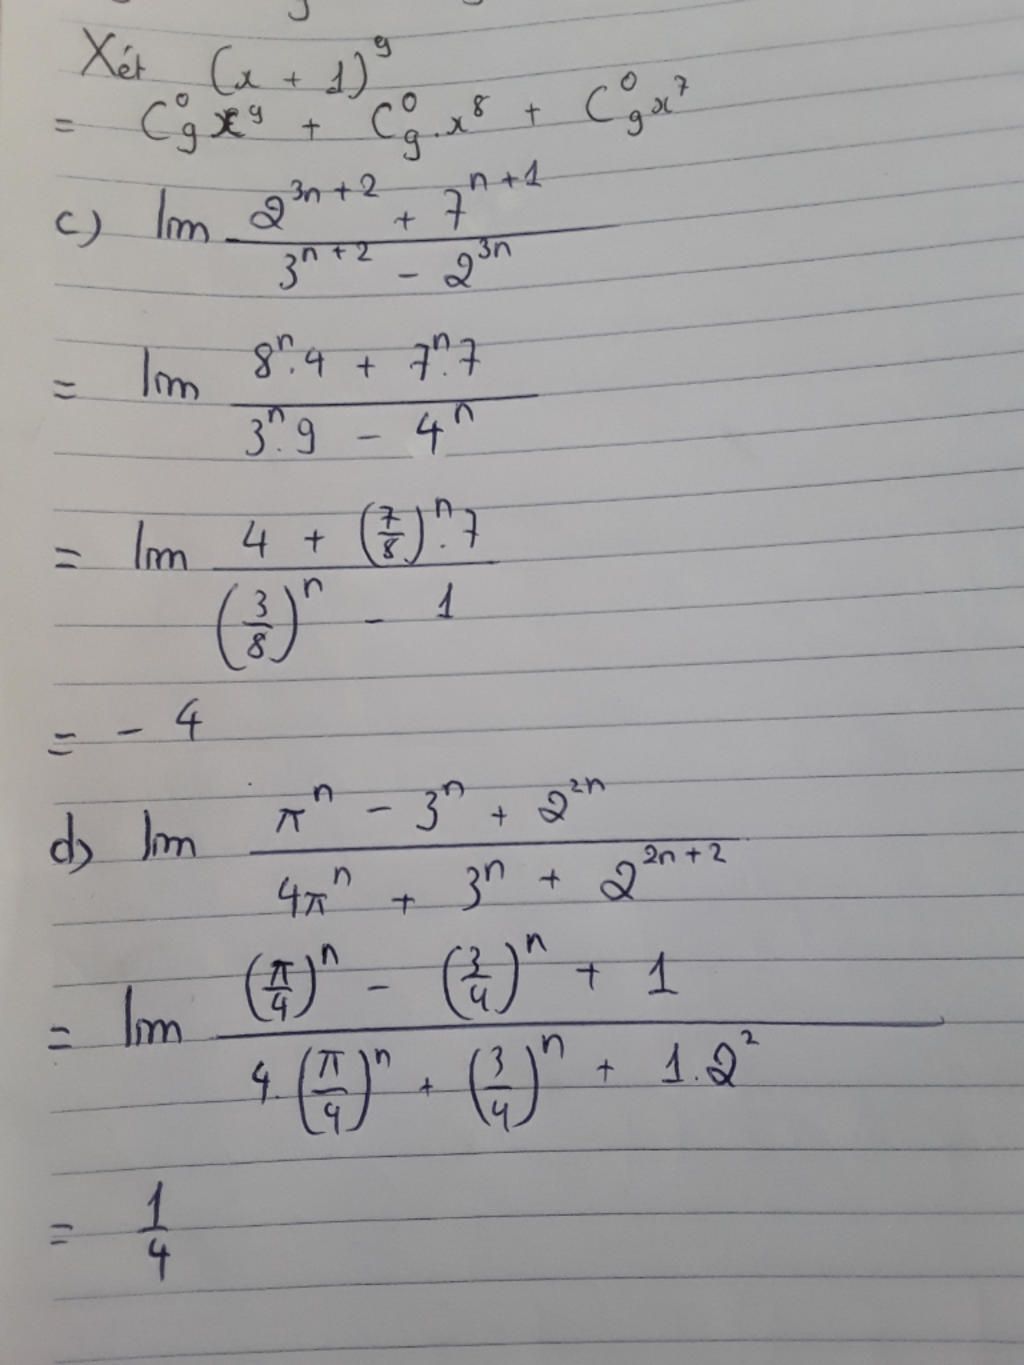 Xét (x + 1)^9
= C_9^0 x^9 + C_9^0 . x^8 + C_9^0 x^7
c) lim \frac{2^{3n+2} + 7^{n+1}}{3^{n+2} - 2^{3n}}
= lim \frac{8^n.4 + 7^n.7}{3^n.9 - 4^n}
= lim \frac{4 + (\frac{7}{8})^n.7}{(\frac{3}{8})^n - 1}
= - 4
d) lim \frac{π^n - 3^n + 2^{2n}}{4π^n + 3^n + 2^{2n+2}}
= lim \frac{(\frac{π}{4})^n - (\frac{3}{4})^n + 1}{4.(\frac{π}{4})^n + (\frac{3}{4})^n + 1.2^2}
= \frac{1}{4}